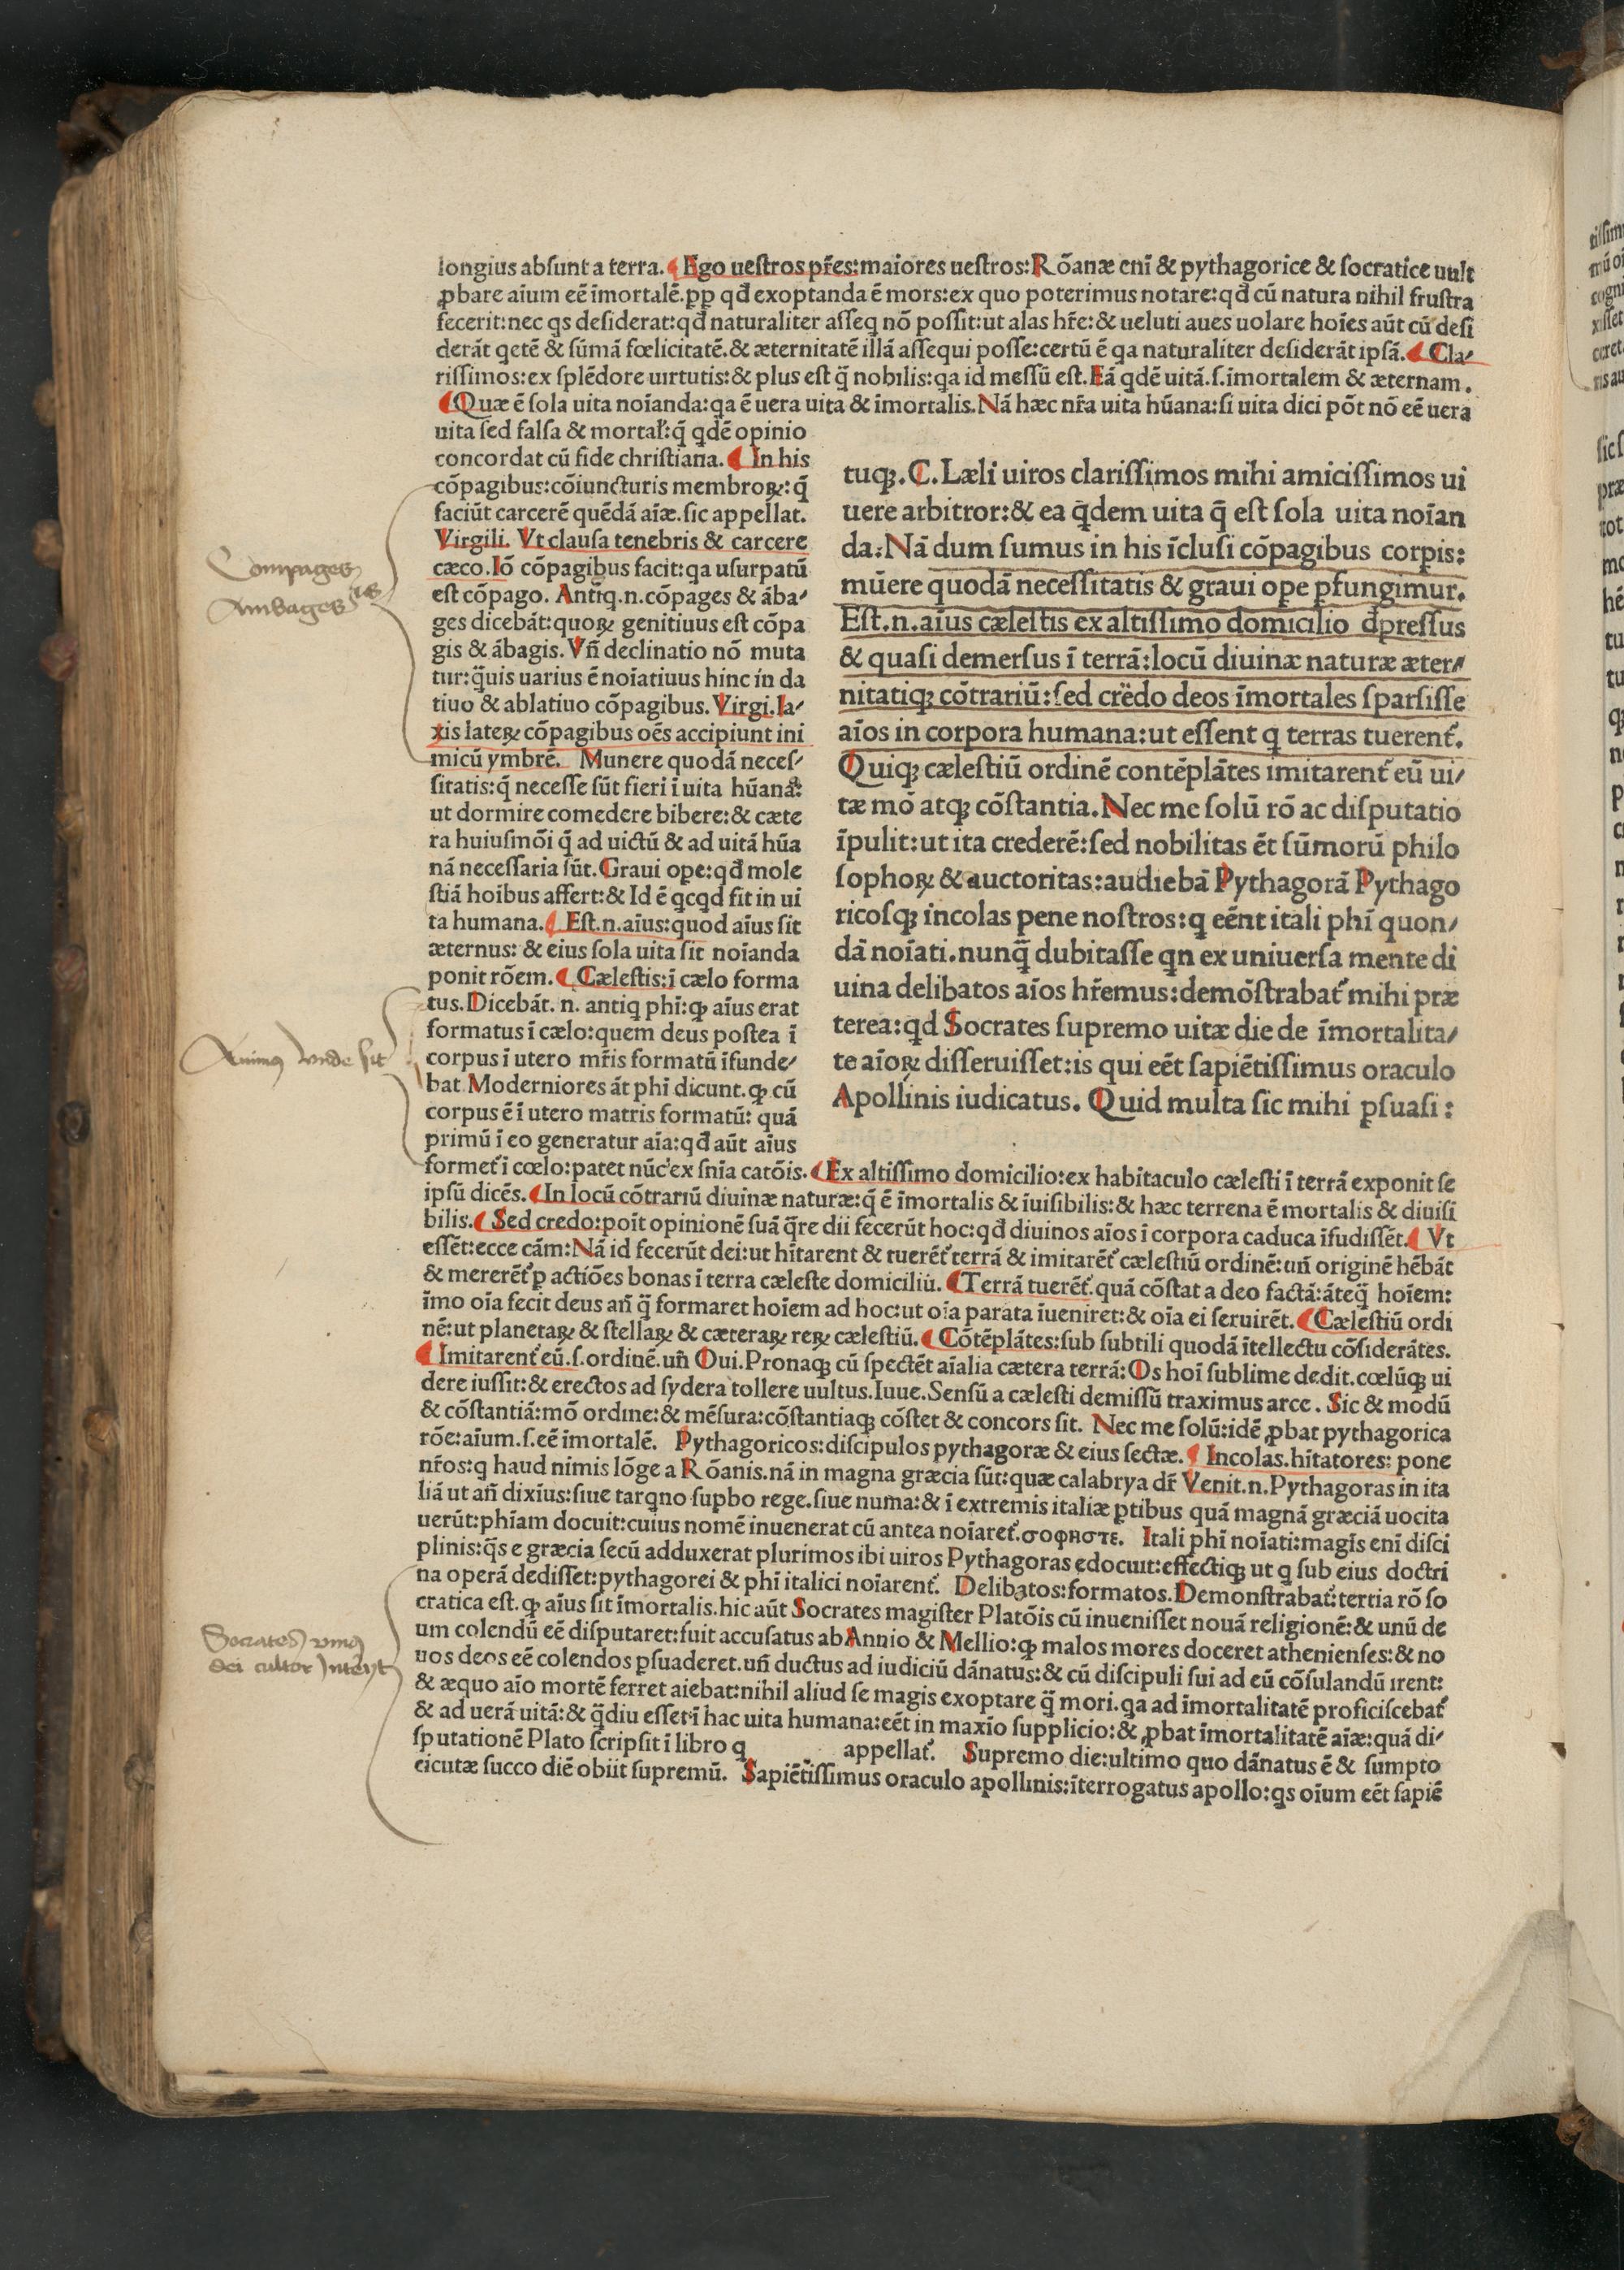 longius abſunt a terra. Ego ueſtros pr̄es: maiores ueſtros: Rōanæ eni & pythagorice & ſocratice uult
ꝓbare aīum eē īmortalē. pp qđ exoptanda ē mors: ex quo poterimus notare: qđ cū natura nihil fruſtra
fecerit: nec qs deſiderat: qđ naturaliter aſſeq nō poſſit: ut alas hr̄e: & ueluti aues uolare hoīes aūt cū deſi
derāt qetē & ſūmā fœlicitatē. & æternitatē illā aſſequi poſſe: certū ē qa naturaliter deſiderāt ipſā. Cla/
riſſimos: ex ſplēdore uirtutis: & plus eſt q̄ nobilis: qa id meſſū eſt. Eā qdē uitā. ſ. īmortalem & æternam.
Quæ ē ſola uita noīanda: qa ē uera uita & īmortalis. Nā hæc nr̄a uita hūana: ſi uita dici pōt nō eē uera
uita ſed falſa & mortał: q̄ qdē opinio
concordat cū fide chriſtiana. In his
cōpagibus: cōiuncturis membroꝝ: q̄
faciūt carcerē quēdā aīæ. ſic appellat.
Virgili. Vt clauſa tenebris & carcere
cæco. Iō cōpagibus facit: qa uſurpatū
eſt cōpago. Antiq. n. cōpages & āba/
ges dicebāt: quoꝝ genitiuus eſt cōpa
gis & ābagis. Vn̄ declinatio nō muta
tur: q̄uis uarius ē noīatiuus hinc in da
tiuo & ablatiuo cōpagibus. Virgi. la/
xis lateꝝ cōpagibus oēs accipiunt ini
micū ymbrē. Munere quodā neceſ/
ſitatis: q̄ neceſſe ſūt fieri ī uita hūana:
ut dormire comedere bibere: & cæte
ra huiuſmōi q̄ ad uictū & ad uitā hūa
nā neceſſaria ſūt. Graui ope: qđ mole
ſtiā hoibus affert: & Id ē qcqd fit in ui
ta humana. Eſt. n. aīus: quod aīus ſit
æternus: & eius ſola uita ſit noīanda
ponit rōem. Cæleſtis: ī cælo forma
tus. Dicebāt. n. antiq phī: ꝙ aīus erat
formatus ī cælo: quem deus poſtea ī
corpus ī utero mr̄is formatū īfunde/
bat. Moderniores āt phī dicunt. ꝙ cū
corpus ē ī utero matris formatū: quā
primū ī eo generatur aīa: qđ aūt aīus
tuqꝫ. C. Læli uiros clariſſimos mihi amiciſſimos ui
uere arbitror: & ea q̄dem uita q̄ eſt ſola uita noīan
da. Nā dum ſumus in his īcluſi cōpagibus corpis:
mūere quodā neceſſitatis & graui ope pfungimur.
Eſt. n. aīus cæleſtis ex altiſſimo domicilio dpreſſus
& quaſi demerſus ī terrā: locū diuinæ naturæ æter/
nitatiqꝫ cōtrariū: ſed credo deos īmortales ſparſiſſe
aīos in corpora humana: ut eſſent q terras tuerent̄.
Quiqꝫ cæleſtiū ordinē contēplātes imitarent̄ eū ui/
tæ mō atqꝫ cōſtantia. Nec me ſolū rō ac diſputatio
īpulit: ut ita crederē: ſed nobilitas ēt ſūmorū philo
ſophoꝝ & auctoritas: audiebā Pythagorā Pythago
ricoſqꝫ incolas pene noſtros: q eēnt itali phī quon/
dā noīati. nunq̄ dubitaſſe qn ex uniuerſa mente di
uina delibatos aīos hr̄emus: demōſtrabat̄ mihi præ
terea: qd Socrates ſupremo uitæ die de īmortalita/
te aīoꝝ diſſeruiſſet: is qui eēt ſapiētiſſimus oraculo
Apollinis iudicatus. Quid multa ſic mihi pſuaſi:
formet̄ ī cœlo: patet nūc ex ſnīa catōis. Ex altiſſimo domicilio: ex habitaculo cæleſti ī terrā exponit ſe
ipſū dicēs. In locū cōtrariū diuinæ naturæ: q̄ ē īmortalis & īuiſibilis: & hæc terrena ē mortalis & diuiſi
bilis. Sed credo: poīt opinionē ſuā q̄re dii fecerūt hoc: qđ diuinos aīos ī corpora caduca īfudiſſēt. Vt
eſſēt: ecce cām: Nā id fecerūt dei: ut hītarent & tuerēt̄ terrā & imitarēt̄ cæleſtiū ordinē: un̄ originē hēbāt
& mererēt̄ p actiōes bonas ī terra cæleſte domiciliū. Terrā tuerēt̄. quā cōſtat a deo factā: āteq̄ hoīem:
īmo oīa fecit deus an̄ q̄ formaret hoīem ad hoc: ut oīa parata īueniret: & oīa ei ſeruirēt. Cæleſtiū ordi
nē: ut planetaꝝ & ſtellaꝝ & cæteraꝝ reꝝ cæleſtiū. Cōtēplātes: ſub ſubtili quodā ītellectu cōſiderātes.
Imitarent̄ eū. ſ. ordinē. un̄ Oui. Pronaqꝫ cū ſpectēt aīalia cætera terrā: Os hoī ſublime dedit. cœlūqꝫ ui
dere iuſſit: & erectos ad ſydera tollere uultus. Iuue. Senſū a cæleſti demiſſū traximus arce. Sic & modū
& cōſtantiā: mō ordine: & mēſura: cōſtantiaqꝫ cōſtet & concors ſit. Nec me ſolū: idē ꝓbat pythagorica
rōe: aīum. ſ. eē īmortalē. Pythagoricos: diſcipulos pythagoræ & eius ſectæ. Incolas. hītatores: pone
nr̄os: q haud nimis lōge a Rōanis. nā in magna græcia ſūt: quæ calabrya dr̄ Venit. n. Pythagoras in ita
liā ut an̄ dixīus: ſiue tarqno ſupbo rege. ſiue numa: & ī extremis italiæ ptibus quā magnā græciā uocita
uerūt: phīam docuit: cuius nomē inuenerat cū antea noīaret̄. σοφηστε. Itali phī noīati: magis eni diſci
plinis: q̄s e græcia ſecū adduxerat plurimos ibi uiros Pythagoras edocuit: effectiqꝫ ut q ſub eius doctri
na operā dediſſet: pythagorei & phī italici noīarent̄. Delibatos: formatos. Demonſtrabat̄: tertia rō ſo
cratica eſt. ꝙ aīus ſit īmortalis. hic aūt Socrates magiſter Platōis cū inueniſſet nouā religionē: & unū de
um colendū eē diſputaret: fuit accuſatus ab Annio & Mellio: ꝙ malos mores doceret athenienſes: & no
uos deos eē colendos pſuaderet. un̄ ductus ad iudiciū dānatus: & cū diſcipuli ſui ad eū cōſulandū irent:
& æquo aīo mortē ferret aiebat: nihil aliud ſe magis exoptare q̄ mori. qa ad īmortalitatē proficiſcebat̄
& ad uerā uitā: & q̄diu eſſet ī hac uita humana: eēt in maxīo ſupplicio: & ꝓbat īmortalitatē aīæ: quā di/
ſputationē Plato ſcripſit ī libro q appellat̄. Supremo die: ultimo quo dānatus ē & ſumpto
cicutæ ſucco diē obiit ſupremū. Sapiētiſſimus oraculo apollinis: īterrogatus apollo: qs oīum eēt ſapiē
Compages
Ambages is
Animus vnde ſit
Socrates vnius
dei cultor